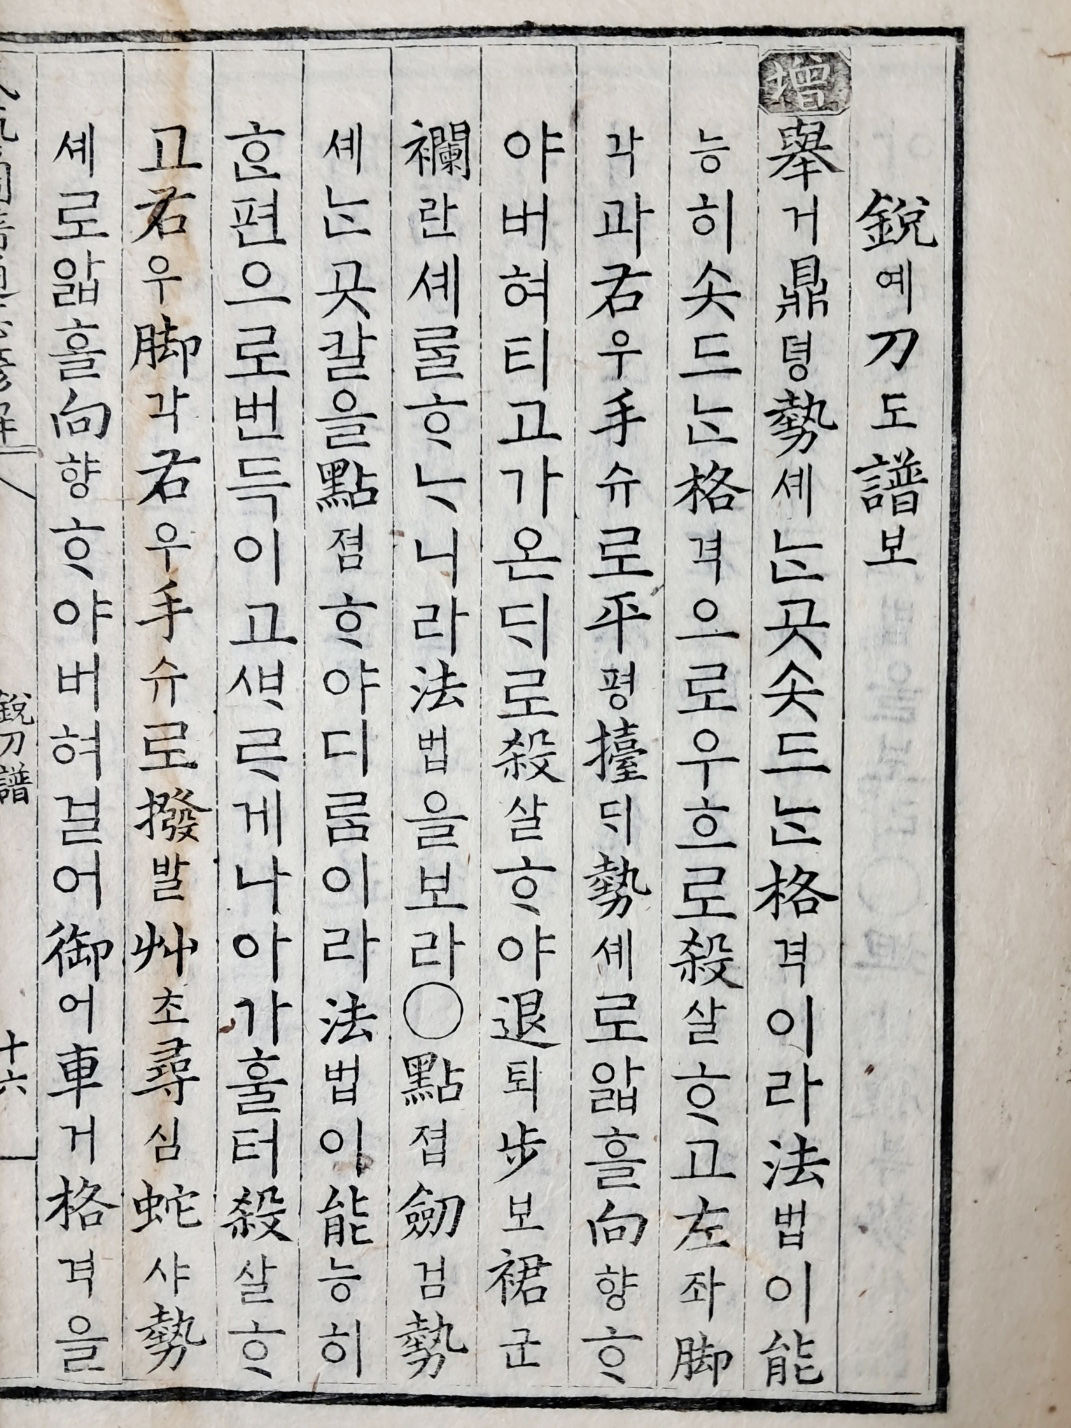 銳예刀도譜보
增
舉거鼎뎡勢셰ᄂᆞᆫ곳솟드ᄂᆞᆫ格격이라法법이能
능히솟드ᄂᆞᆫ格격으로우흐로殺살ᄒᆞ고左좌脚
각과右우手슈로平평擡ᄃᆡ勢셰로앏흘向향ᄒᆞ
야버혀티고가온ᄃᆡ로殺살ᄒᆞ야退퇴步보裙군
襴란셰롤ᄒᆞᄂᆞ니라法법을보라○點졉劒검勢
셰ᄂᆞᆫ곳칼을點졈ᄒᆞ야디룸이라法법이能능히
ᄒᆞᆫ편으로번득이고ᄲᆞᄅᆞ게나아가훌터殺살ᄒᆞ
고右우脚각右우手슈로撥발艸초尋심蛇샤勢
셰로앏흘向향ᄒᆞ야버혀걸어御어車거格격을
銳刀譜
十六